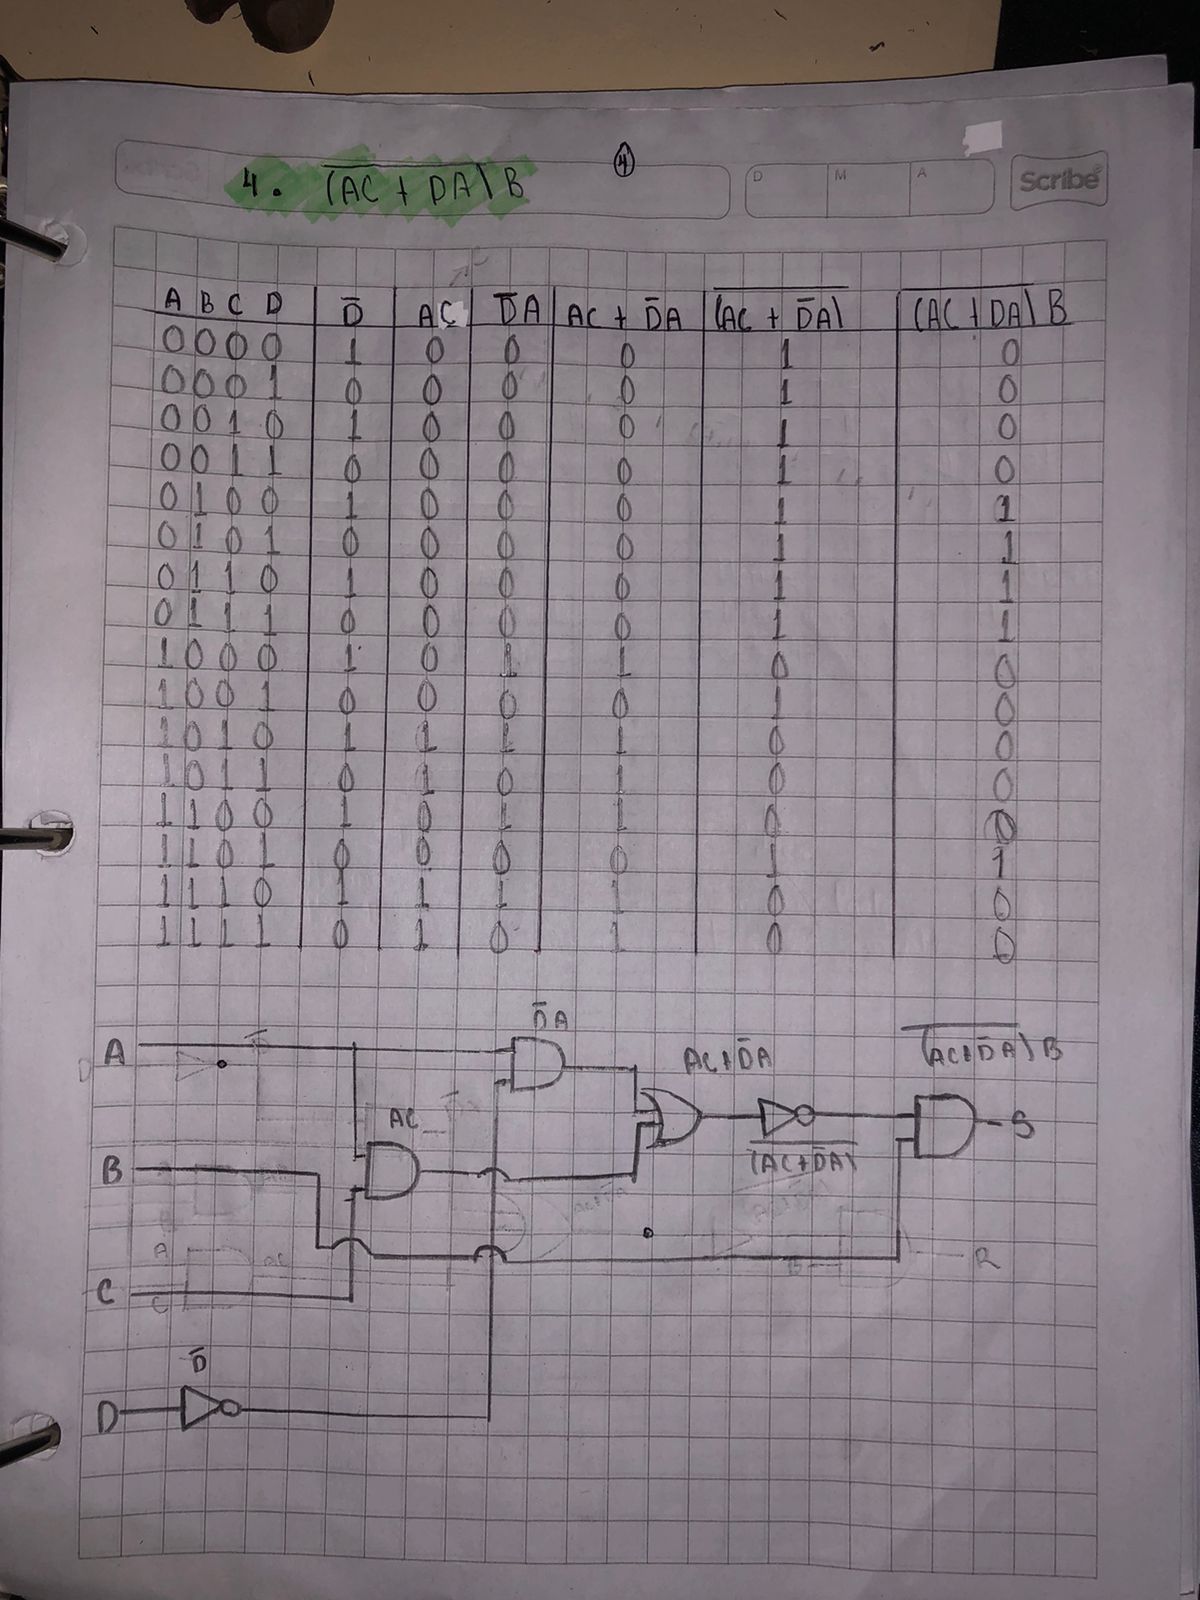 4. (A̅C̅ ̅+̅ ̅D̅A̅)B
4
D M A
Scribe
A B C D D̅ AC D̅A AC + D̅A (̅A̅C̅ ̅+̅ ̅D̅A̅)̅ (̅A̅C̅ ̅+̅ ̅D̅A̅)̅B
0 0 0 0 1 0 0 0 1 0
0 0 0 1 0 0 0 0 1 0
0 0 1 0 1 0 0 0 1 0
0 0 1 1 0 0 0 0 1 0
0 1 0 0 1 0 0 0 1 1
0 1 0 1 0 0 0 0 1 1
0 1 1 0 1 0 0 0 1 1
0 1 1 1 0 0 0 0 1 1
1 0 0 0 1 0 1 1 0 0
1 0 0 1 0 0 0 0 1 0
1 0 1 0 1 1 1 1 0 0
1 0 1 1 0 1 0 1 0 0
1 1 0 0 1 0 1 1 0 0
1 1 0 1 0 0 0 0 1 1
1 1 1 0 1 1 1 1 0 0
1 1 1 1 0 1 0 1 0 0
D̅A
A
AC+D̅A
(̅A̅C̅+̅D̅A̅)̅B
AC
S
(̅A̅C̅+̅D̅A̅)̅
B
A
AC
R
C
C
D̅
D